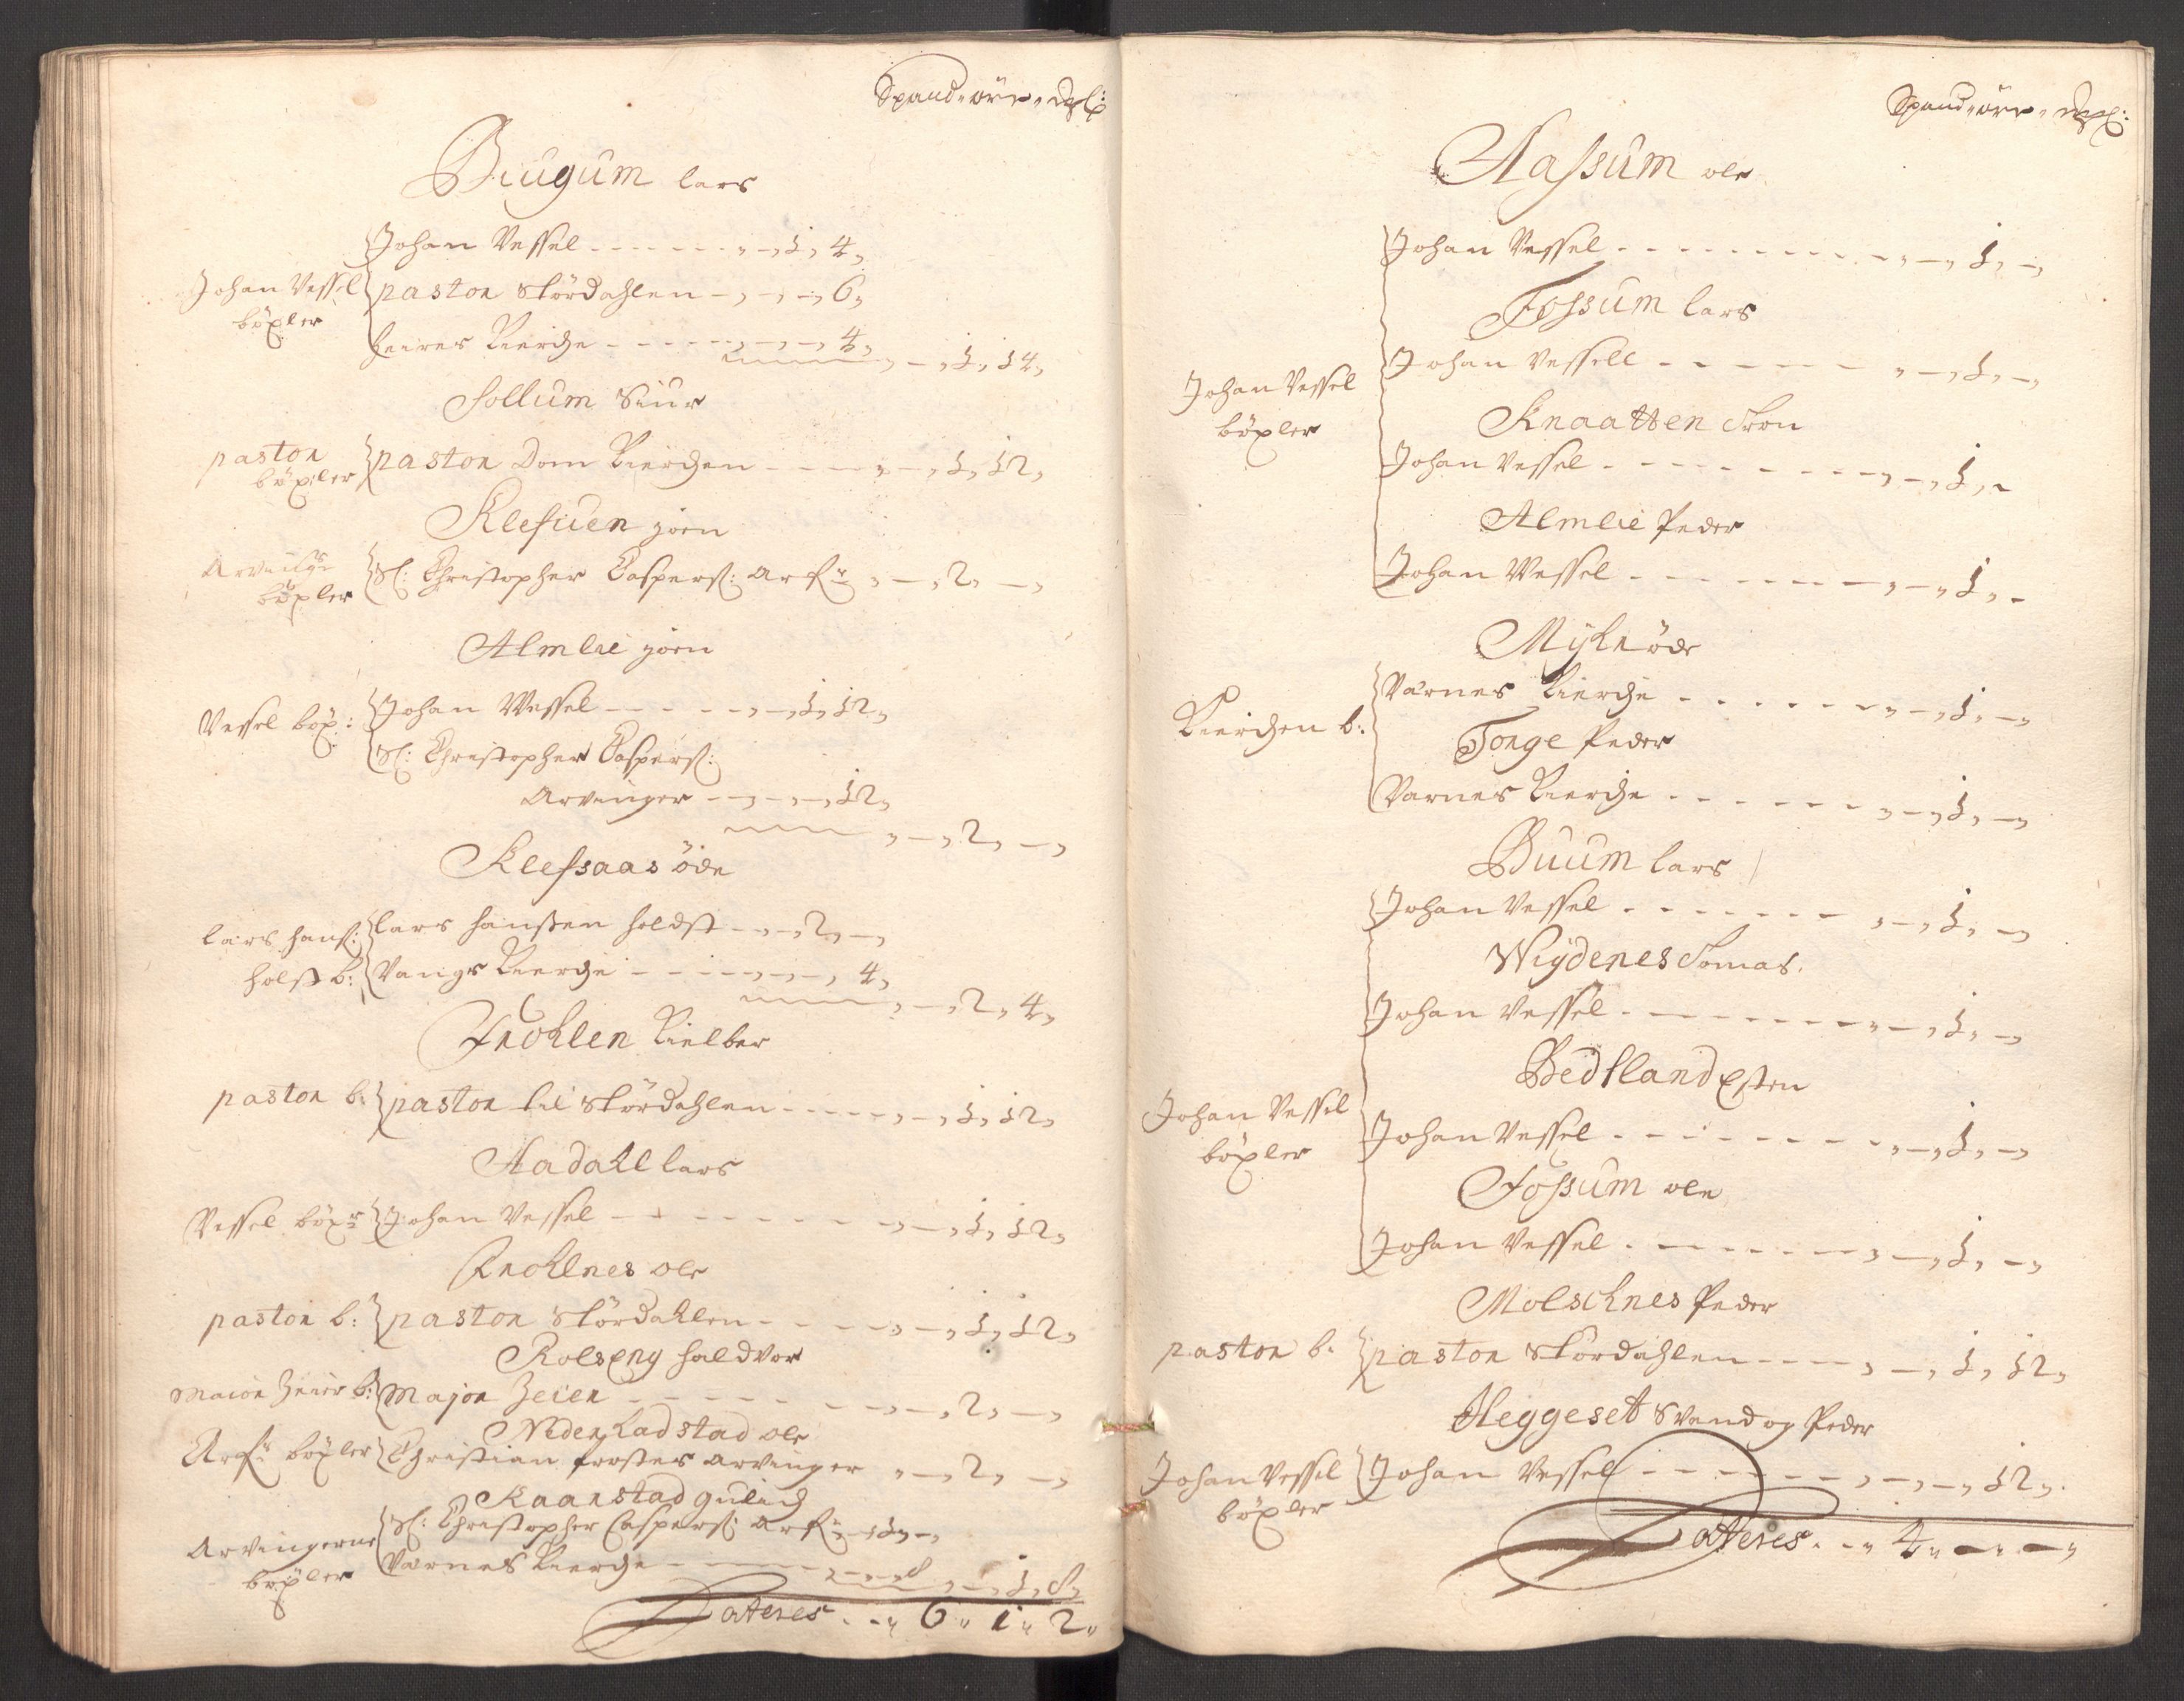 Spand " öre "
Biugum lars
Johan Vessel - - - - - " - , 1, 4,
Johan Vessel
böxler
pastor Stördahlen - , - , - , 6,
heires Kierche - - - - , - , - , 4,
- , 1, 14,
Sollum Siur
pastor
böxler
pastor Dom Kierchen - - - - , - , 1, 12,
Klefsuen joen
böxler
Sl: Christopher Caspers: Arf: , - , 2, - ,
Almlie joen
Vessel böx:
Johan Wessel - - - - - , - , 1, 12,
Sl: Christopher Caspers:
Arvinger - , - , - , 12,
, - , 2, - ,
Klefsaas öde
lars hans:
holst b:
lars hanssen holdst - , - , 2, - ,
Vangs Kierche - - - , - , - , 4,
, - , 2, 4,
Frohlen Kielber
pastor b:
pastor til Stördahlen - - - - , - , 1, 12,
Aadahl lars
Vessel böxr
Johan Vessel - - - - - - - - , - , 1, 12,
ole
pastor b:
pastor Stördahlen - - - - , - , 1, 12,
Rolseng haldvor
Major Zeier b:
Major Zeier - - - - - - , - , 2, - ,
Nederkadstad ole
Arf: böxler
Christian frostes Arvinger " - , 2, - ,
Kaarstad gulich
Arvingerne
böxler
Sl: Christopher Caspers: Arf: - , 1, - ,
Værnes Kierche - - - - - , - , - , 8
, - , 1, 8,
Lateres . - " 6 " 1 " 2 "
Spand " öre "
Aassum ole
Johan Vessel - - - - - - - - - , - , 1, - ,
Fossum lars
Johan Vessel
böxler
Johan Vessell - - - - - - , - , 1, - ,
Knaatten
Johan Vessel - - - - - - - - , - , 1, -
Almlie Peder
Johan Wessel - - - - - - - , - " 1, -
öde
Kierchen b:
Værnes Kierche - - - - - - , - , 1, - ,
Tonge Peder
Varnes Kierche - - - - - - , - , 1, - ,
Buum lars
Johan Vessel - - - - - - - , - , 1, - ,
Wiydenes Tomas.
Johan Vessel - - - - - - - - " - , 1, - ,
Bedtland Esten
Johan Vessel
böxler
Johan Vessel - - - - - - - - , - , 1, - ,
Fossum ole
Johan Vessel - - - - - - - , - , 1, - ,
Molschnes Peder
pastor b.
pastor Stördahlen - - - - , - , 1, 12,
Heggeset Svend og Peder
Johan Vessel
böxler
Johan Vessel - - - - - - - , - , - , 12,
Lateres . - " 4 " - " - "